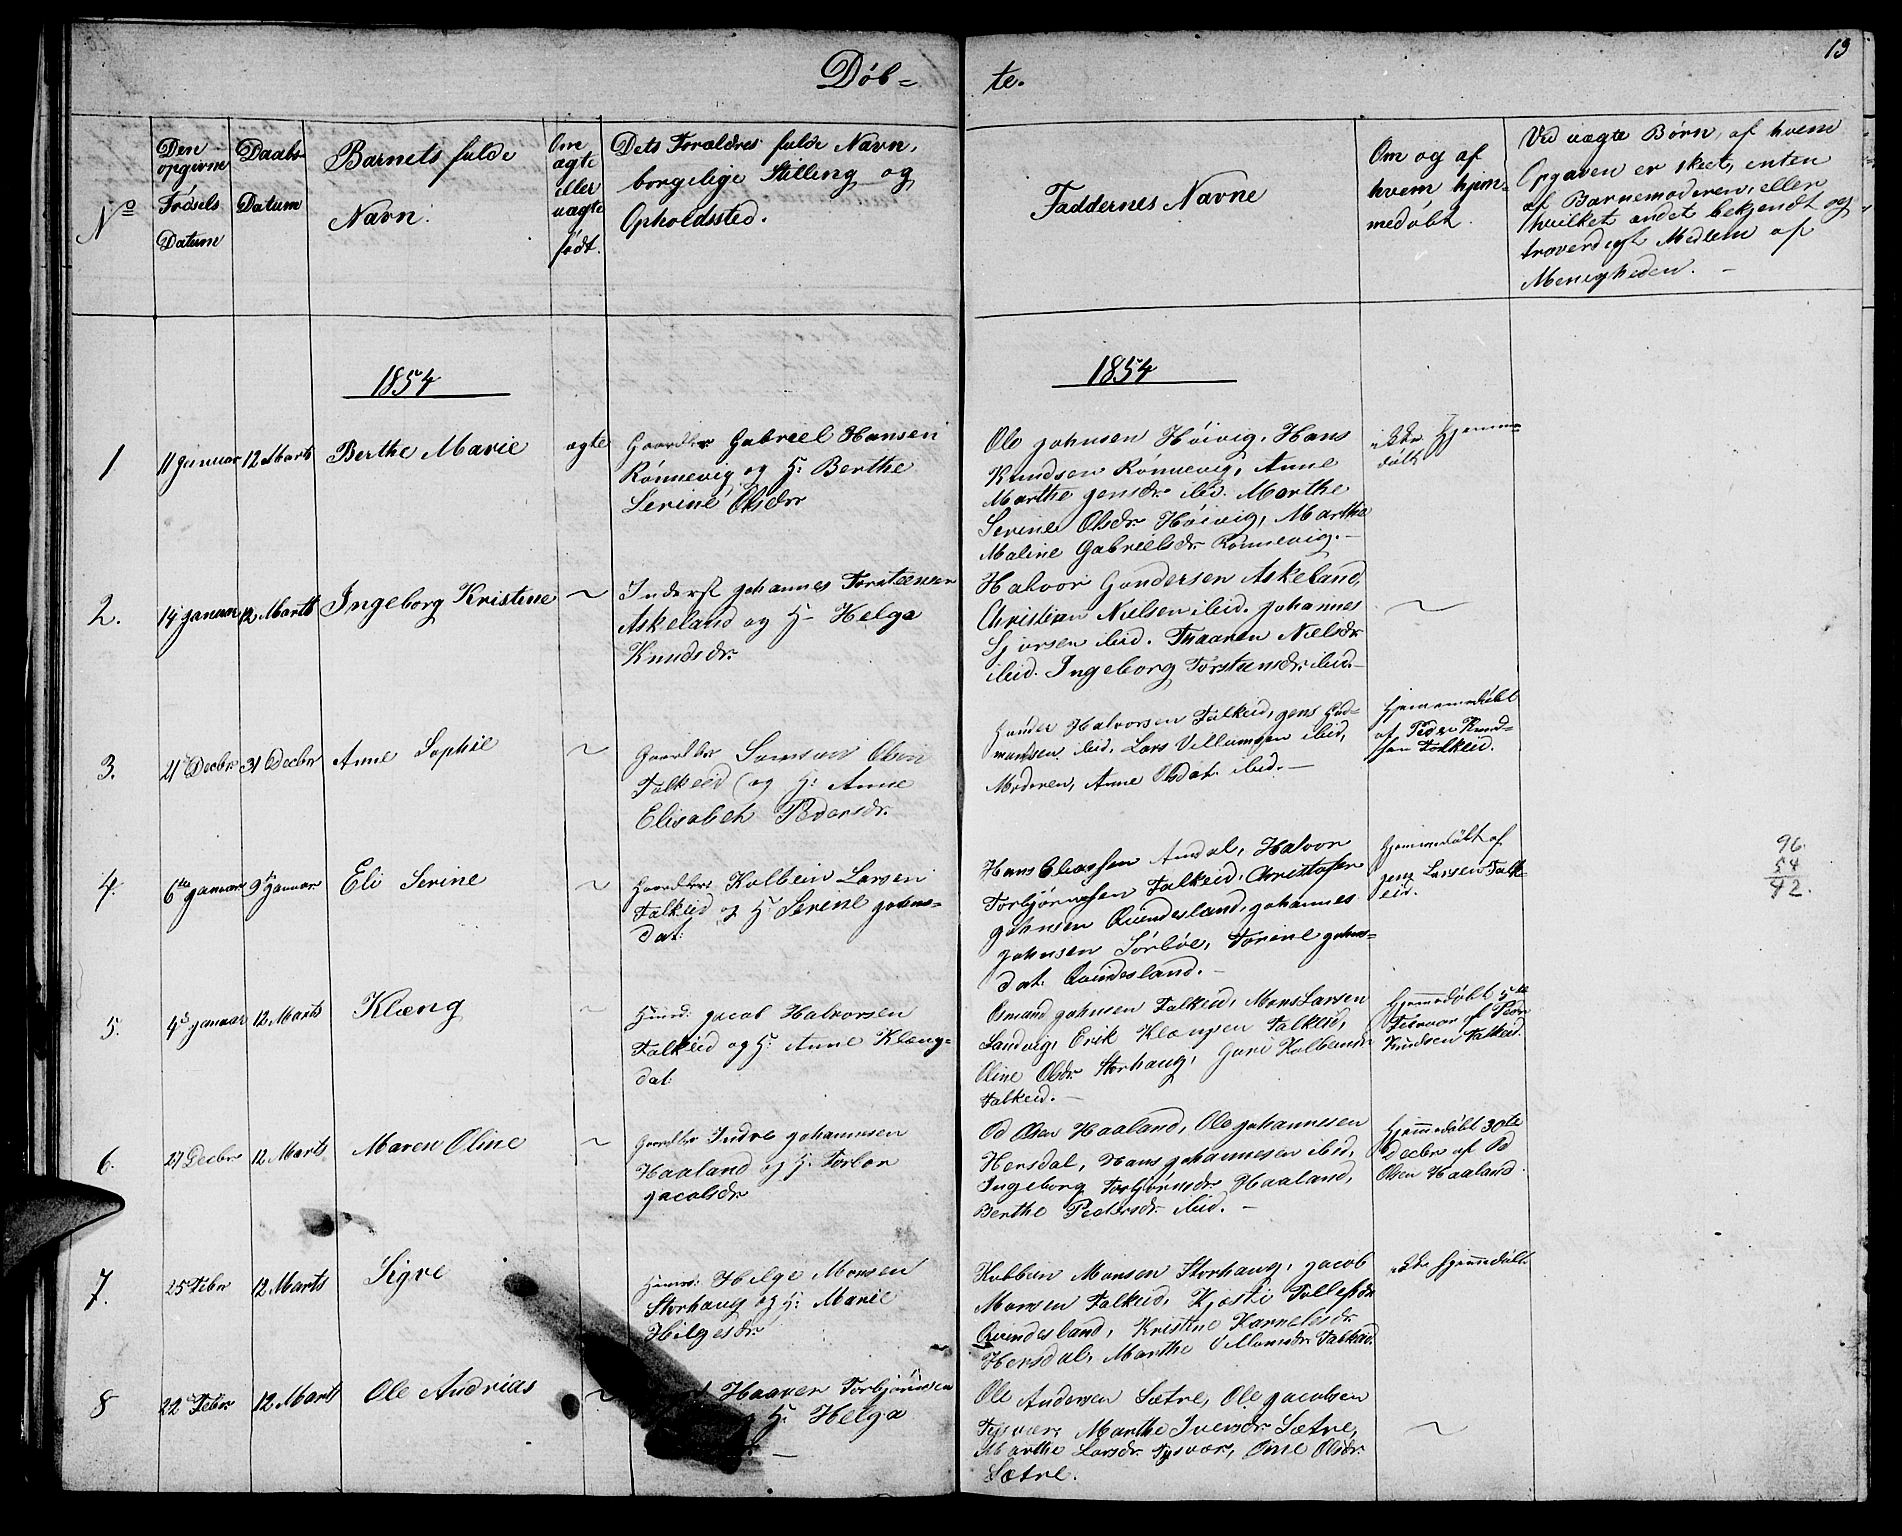 13
Döb-
te.
No
Den opgivne Födsels Datum
Daabs Datum
Barnets fulde Navn.
Om ægte eller uægte født.
Dets Forældres fulde Navn, borgelige Stilling og Opholdssted.
Faddernes Navne
Om og af hvem hjemmedöbt.
Ved uægte Børn, af hvem Opgaven er skeet, enten af Barnemoderen, eller hvilket andet bekjendt og troverdigt Medlem af Menigheden. -
1854
1854
1
11 Januar
12 Marts
Berthe Marie
ægte
Gaardbr Gabriel Hansen
Rönnevig og H. Berthe
Serine Olsdr
Ole Johnsen Höivig, Hans
Knudsen Rönnevig, Anne
Marthe Jensdr. ibid. Marthe
Serine Olsdr. Höivig, Martha
Maline Gabrielsdr. Rönnevig. -
ikke hjemme-
döbt
2.
14 Januar
12 Marts
Ingeborg Kristine
~
Inderst Johannes Torstensen
Askeland og H. Helga
Knudsdr.
Halvor Gundersen Askeland,
Christian Nielsen ibid. Johannes
ibid. Nielsdr
ibid. Ingeborg Torstensdr. ibid. -
~
3.
21 Decbr
31 Decbr
Anne Sophie
~
Gaardbr. Samson Olsen
Falkeid og H. Anne
Elisabeth Pedersdr.
Halvorsen Falkeid, Jens
ibid, Lars Villumsen ibid,
Moderen, Anne Olsdat. ibid. -
Hjemmedöbt
af Peder Knud-
sen Falkeid.
4.
6te Januar
9 Januar
Eli Serine
~
Gaardbr. Kolbein Larsen
Falkeid og H. Serine Johns-
dat.
Hans Eliassen Amdal, Halvor
Torbjörnsen Falkeid, Christofer
Johnsen Qvindesland, Johannes
Johnsen Sörböe, Torine Johns-
dat. Qvindesland. -
Hjemmedöbt af
Jens Larsen Falk-
eid.
96.
54
42.
5.
4 Januar
12 Marts
Klæng
~
Jacob Halvorsen
Falkeid og H. Anne Klæng-
dat.
Osmund Johnsen Falkeid, Mons Larsen
Sandvig, Erik Klængsen Falkeid,
Oline Olsdr. Storhaug, Guri Kolbeinsdr
Falkeid. -
Hjemmedöbt 5te
Februar af Peder
Knudsen Falkeid.
6.
27 Decbr
12 Marts
Maren Oline
~
Gaardbr Indre Johannesen
Haaland og H. Torbor
Jacobsdr.
Od Olsen Haaland, Ole Johannesen
Hersdal, Hans Johannesen ibid,
Ingeborg Torbjörnsdr. Haaland,
Berthe Pedersdr. ibid. -
Hjemmedöbt 30te
Decbr af Od
Olsen Haaland.
7.
25 Febr
12 Marts
Sigve
Helge Monsen
Storhaug og H. Marie
Helgesdr.
Kolbein Monsen Storhaug, Jacob
Monsen Falkeid, Kjesti Tollefsdr
Qvindesland, Kristine Karnelesdr.
Hersdal, Marthe Villumsdr. Falkeid.
ikke hjemmedöbt.
8
22 Febr
12 Marts
Ole Andrias
~
Haaver Torbjörnsen
H. Helga
Ole Andersen Sætre, Ole Jacobsen
Tysvær, Marthe Iversdr. Sætre,
Marthe Larsdr. Tysvær, Olsdr.
Sætre.
~